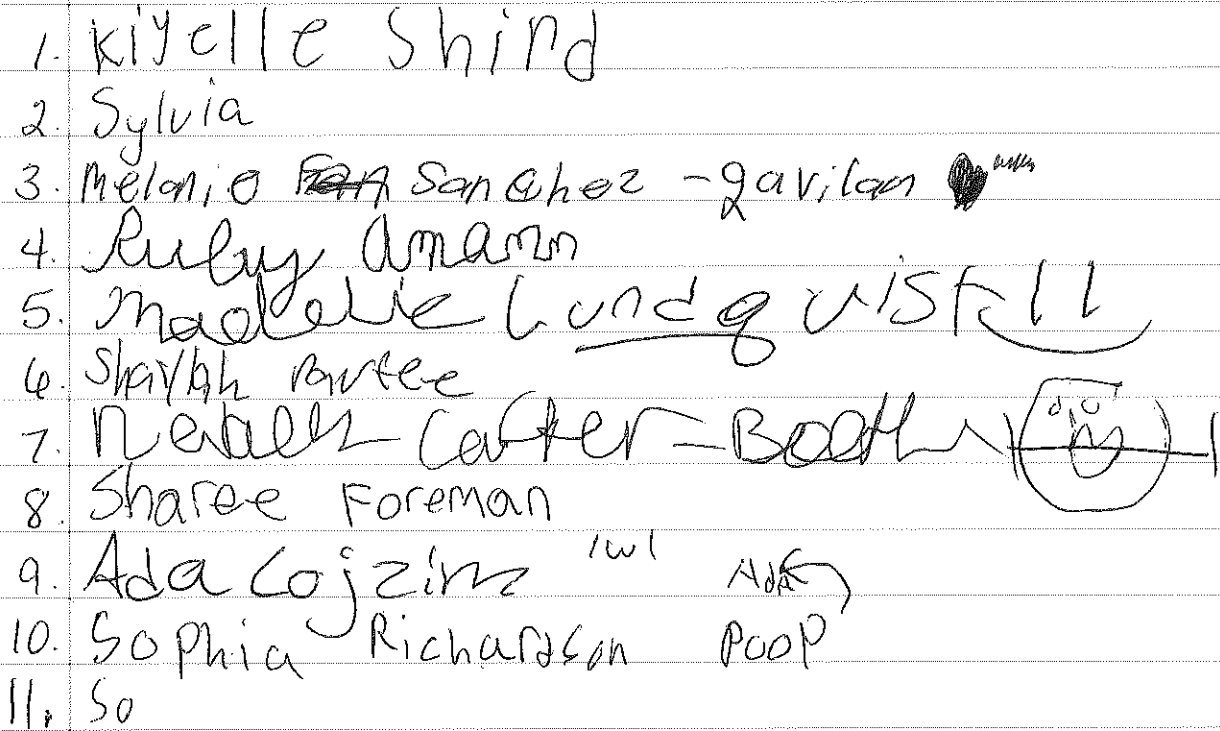 1. Kiyelle Shird
2. Sylvia
3. Melanie Sanchez -gavilan
4. Ruby Amann
5. Lundquist
6. Shaylah
7. Carter-Booth
8. Sharee Foreman
9. Ada Cojzim IWI Ada
10. Sophia Richardson Poop
11. So